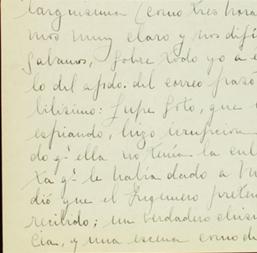 larguísima (como tres hora
mos muy claro y nos difí
gabamos, sobre todo yo a e
lo del apdo. del correo frazó
bilísimo: Lupe Soto, que
espiando, hizo irrupcion
do q. ella no tenía la cul
ta q. le había dado a
dió que el Ingeniero preten
recibido; un verdadero chis
cia, y una escena como di